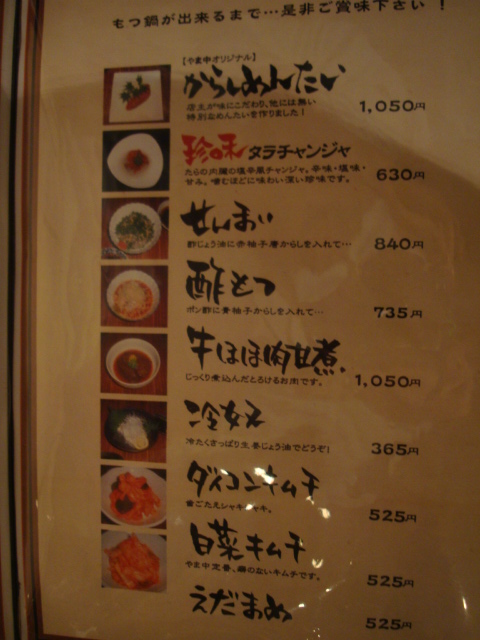 もつ鍋が出来るまで…是非ご賞味下さい！
【やま中オリジナル】
からしめんたい
店主が味にこだわり、他には無い
特別なめんたいを作りました！
1,050円
珍味 タラチャンジャ
たらの内臓の塩辛風チャンジャ。辛味・塩味・
甘み。噛むほどに味わい深い珍味です。
630円
せんまい
酢じょう油に赤柚子唐からしを入れて…
840円
酢もつ
ポン酢に青柚子からしを入れて…
735円
牛ほほ肉甘煮
じっくり煮込んだとろけるお肉です。
1,050円
冷奴
冷たくさっぱり生姜じょう油でどうぞ！
365円
ダイコンキムチ
歯ごたえシャキシャキ。
525円
白菜キムチ
やま中定番、癖のないキムチです。
525円
えだまめ
525円